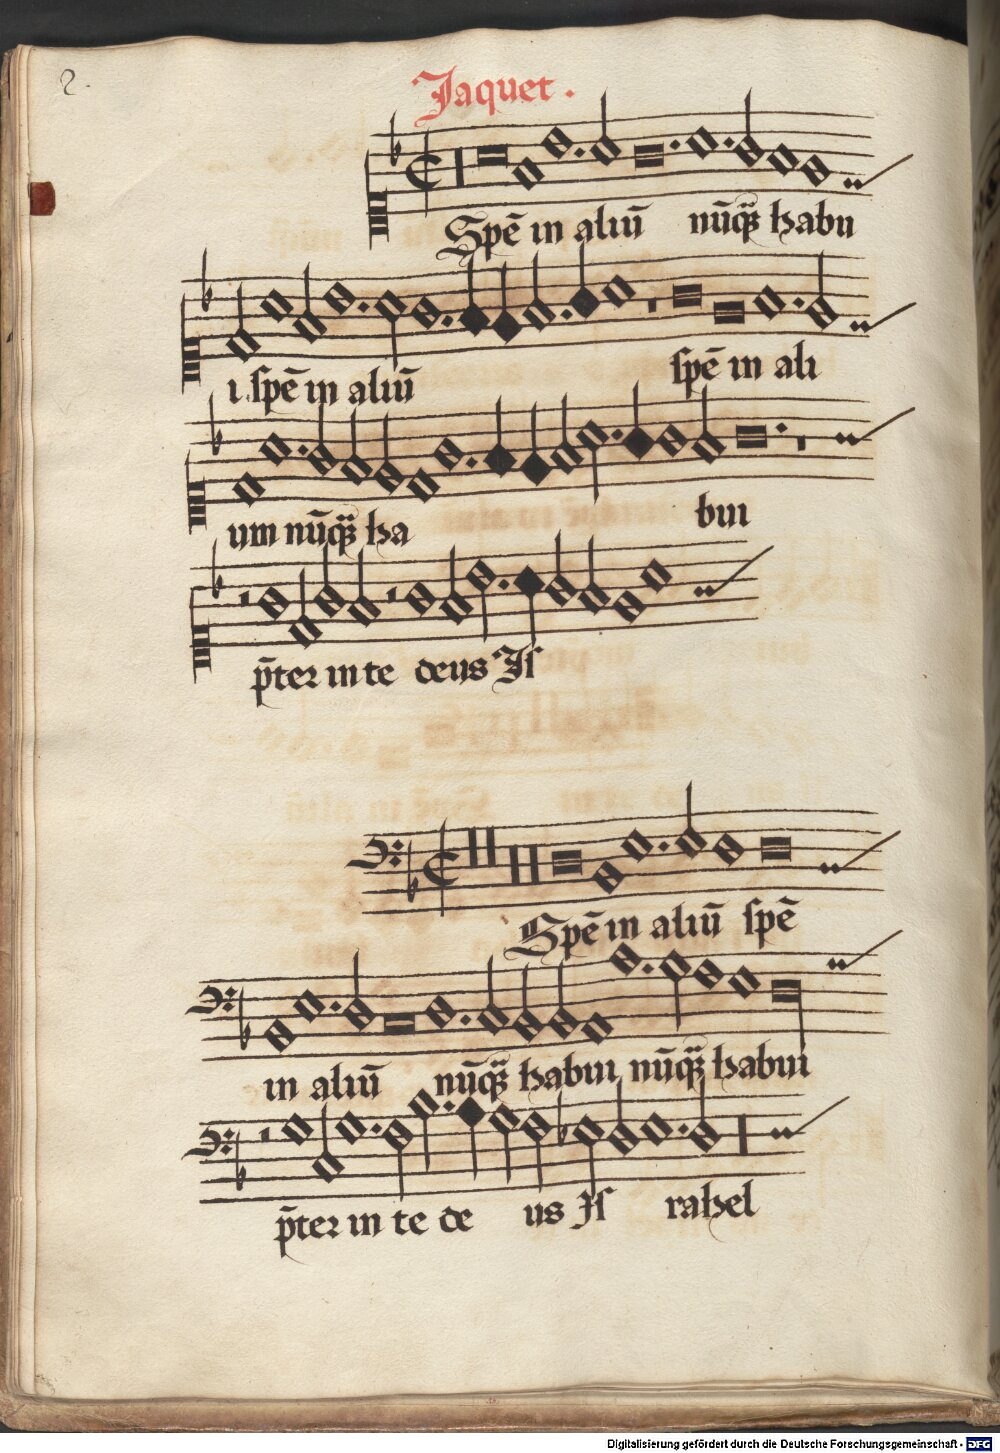 2.
Jaquet.
Spē in aliū nūq̃ʒ habu
i spē in aliū spē in ali
um nūq̃ʒ ha bui
p̄ter in te deus Jſ
Spē in aliū ſpē
in aliū nūq̃ʒ habui nūq̃ʒ habui
p̄ter in te de us Jſ rahel
Digitalisierung gefördert durch die Deutsche Forschungsgemeinschaft - DFG